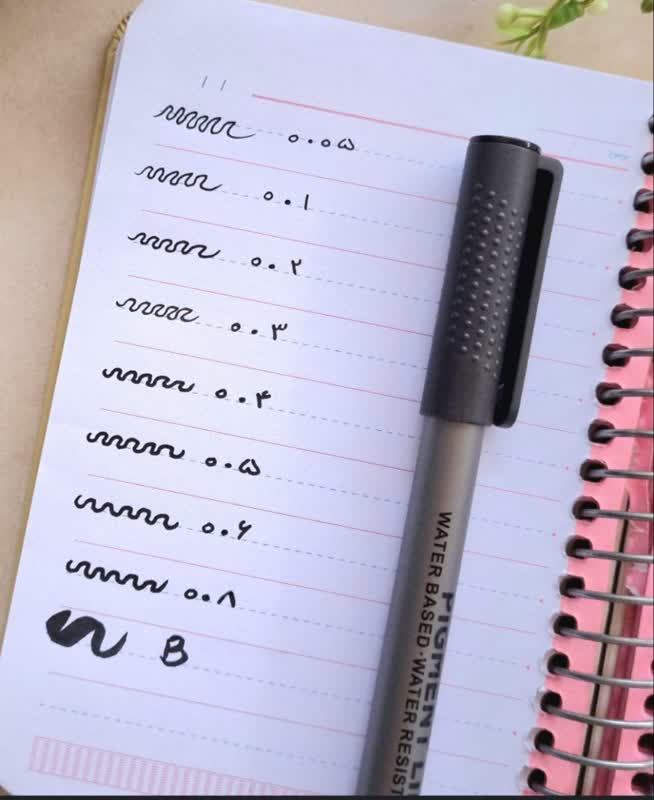 ۰.۰۵
۰.۱
۰.۲
۰.۳
۰.۴
۰.۵
۰.۶
۰.۸
B
PIGMENT
WATER BASED·WATER RESIST